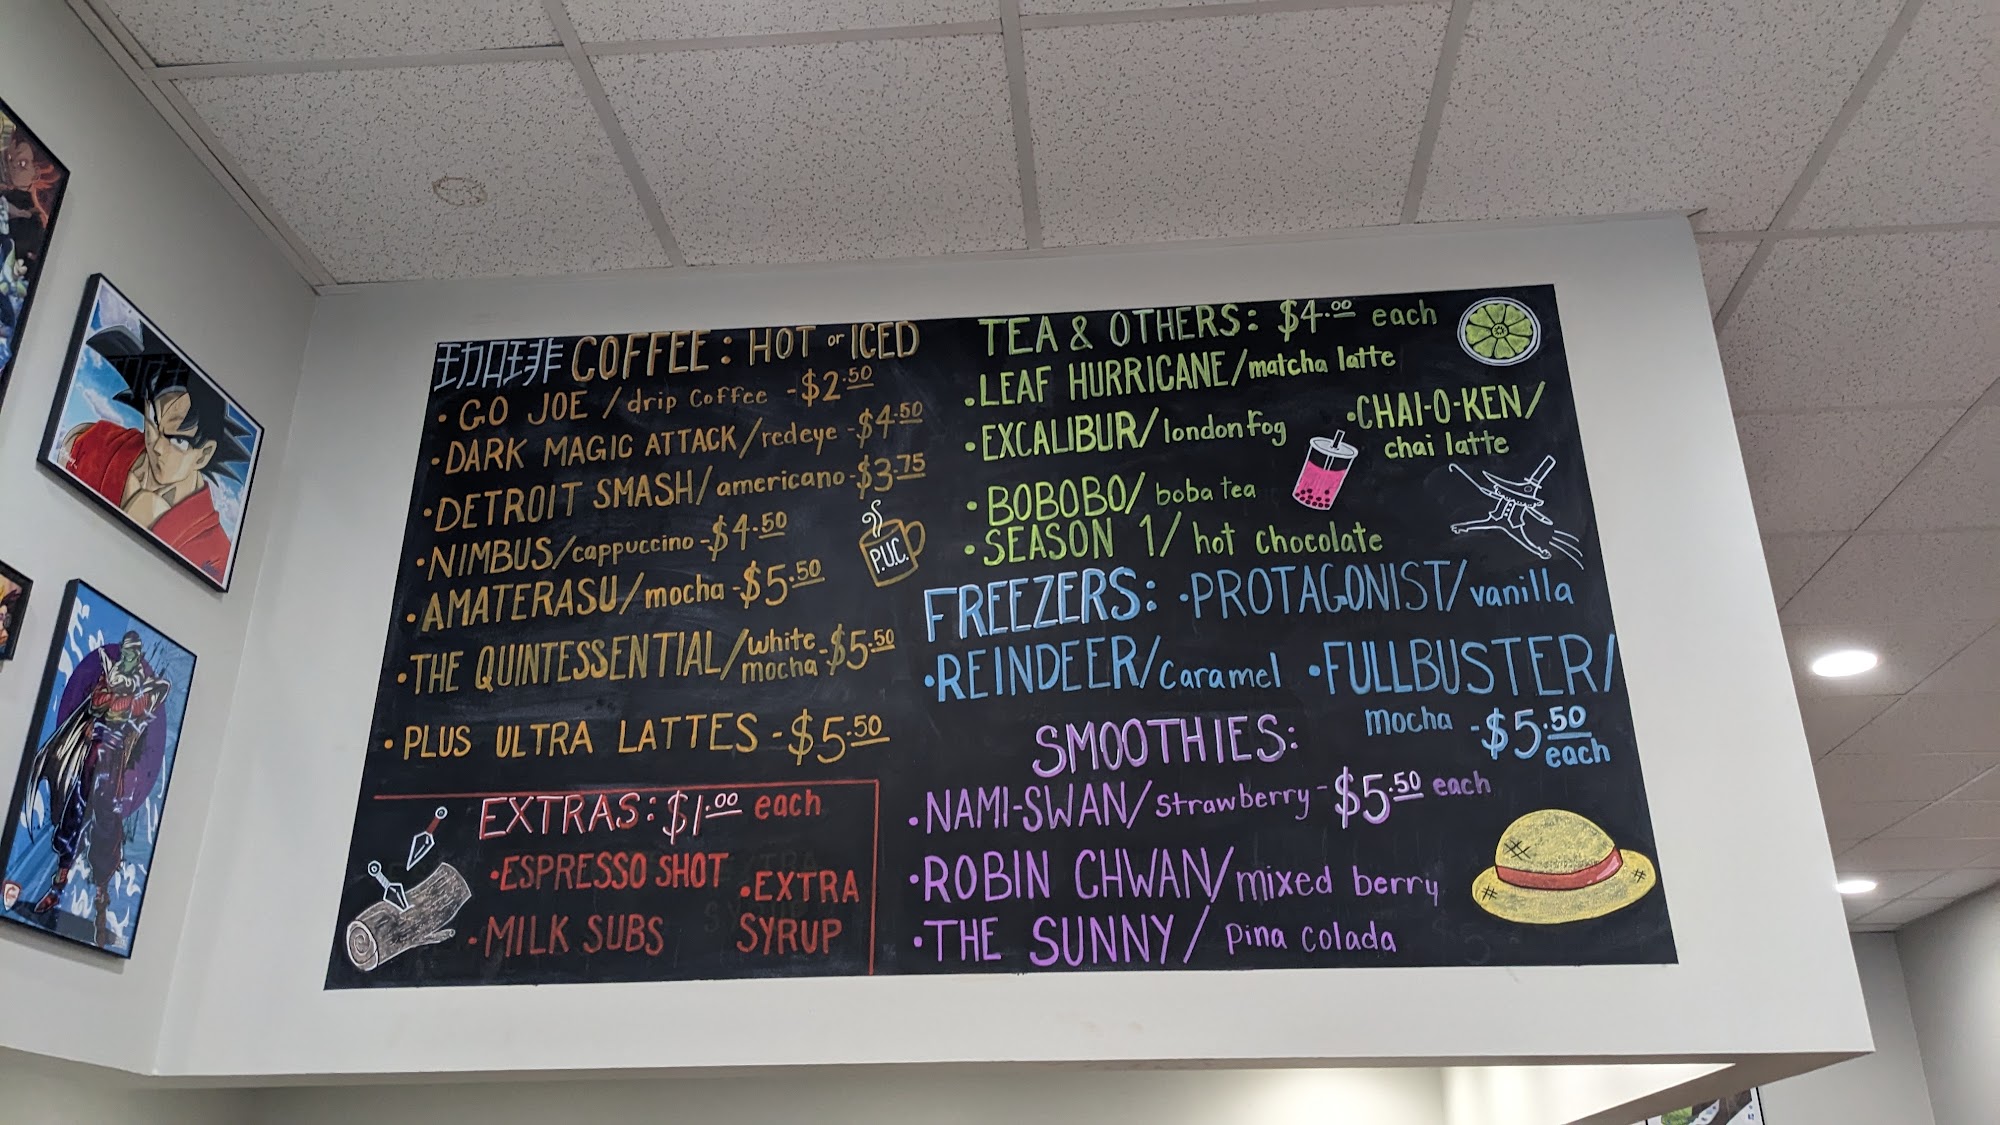 珈琲 COFFEE: HOT or ICED
• GO JOE / drip Coffee - $2.50
• DARK MAGIC ATTACK / redeye - $4.50
• DETROIT SMASH / americano - $3.75
• NIMBUS / cappuccino - $4.50
• AMATERASU / mocha - $5.50
• THE QUINTESSENTIAL / white mocha - $5.50
• PLUS ULTRA LATTES - $5.50
P.U.C.
EXTRAS: $1.00 each
• ESPRESSO SHOT
• MILK SUBS
• EXTRA
SYRUP
TEA & OTHERS: $4.00 each
• LEAF HURRICANE / matcha latte
• EXCALIBUR / london fog
• CHAI-O-KEN /
chai latte
• BOBOBO / boba tea
• SEASON 1 / hot chocolate
FREEZERS: • PROTAGONIST / vanilla
• REINDEER / Caramel • FULLBUSTER /
mocha - $5.50
each
SMOOTHIES:
• NAMI-SWAN / Strawberry - $5.50 each
• ROBIN CHWAN / mixed berry
• THE SUNNY / Pina Colada